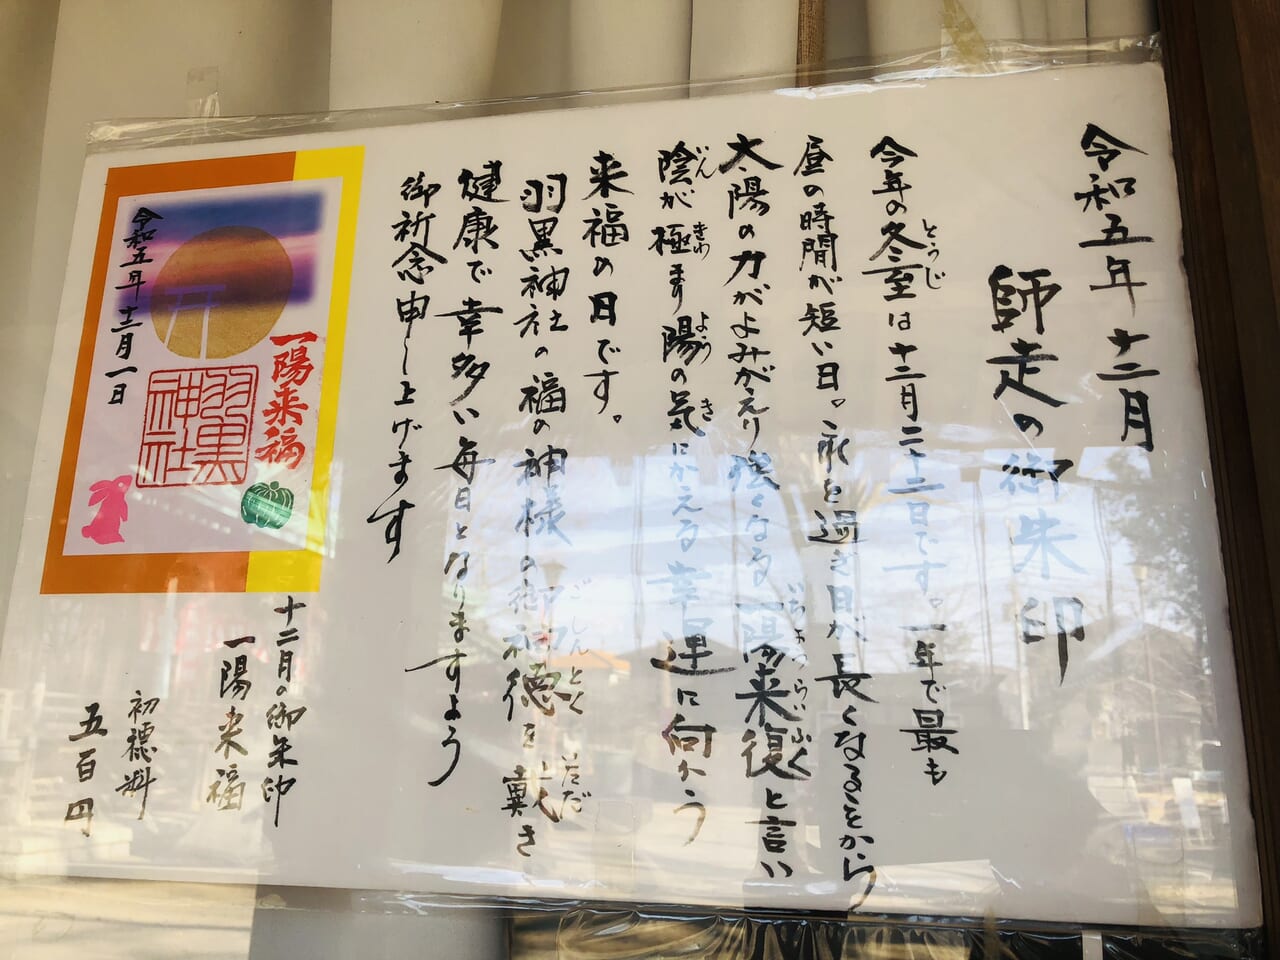 令和五年十二月
師走の御朱印
今年の冬至は十二月二十二日です。一年で最も
とうじ
昼の時間が短い日。この日を過ぎ日が長くなることから
太陽の力がよみがえり強くなる一陽来復と言い
いちようらいふく
陰が極まり陽の気にかえる幸運に向かう
いん
きわ
よう
き
来福の日です。
羽黒神社の福の神様の御神徳を戴き
ごしんとく
いただ
健康で幸多い毎日となりますよう
御祈念申し上げます
令和五年十二月一日
一陽来福
羽黒神社
十二月の御朱印
一陽来福
初穂料
五百円